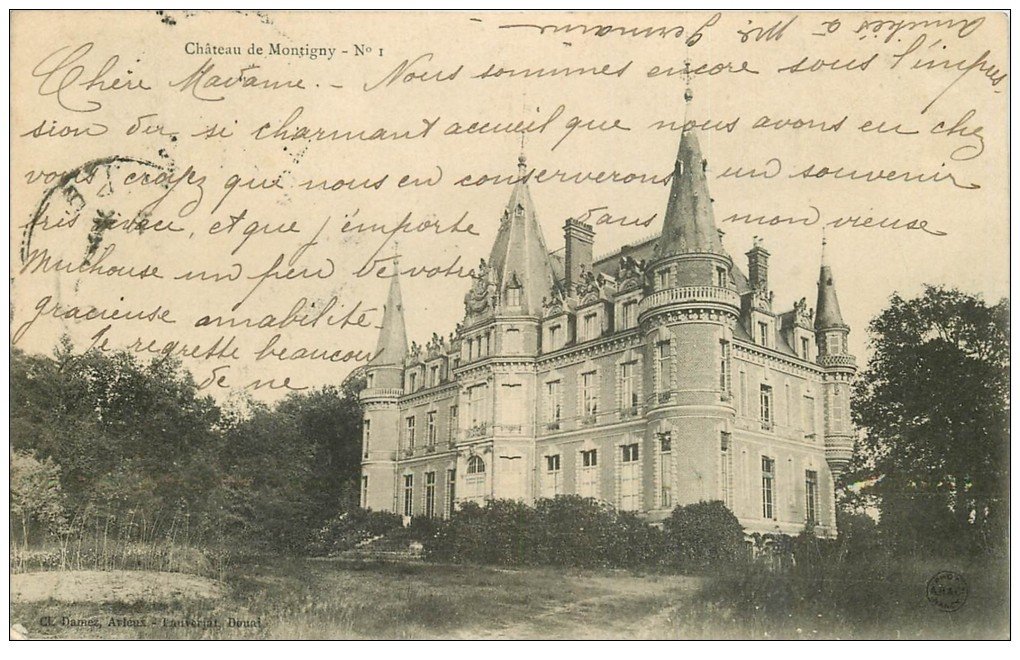 Amitiés à Mr Germain
Château de Montigny - No 1
Chère Madame. - Nous sommes encore sous l'impres-
sion du si charmant accueil que nous avons eu chez
vous croyez que nous en conserverons un souvenir
très, et que j'emporte dans mon vieux
Mulhouse un peu de votre
gracieuse amabilité
Je regrette beaucoup
de ne
Cl. Damez, Arleux. - Lauverjat, Douai